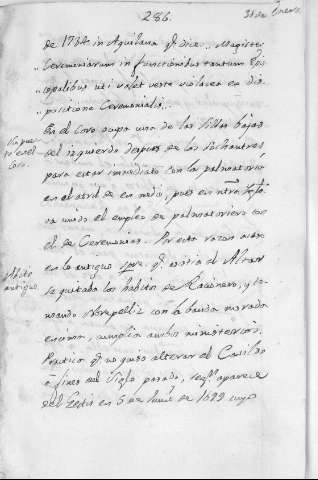 286.
31 de Enero.
de 1734 in Aquilana q.e dice.. Magister
,, Ceremoniarum in functionibus tantum Epis
,, copalibus uti valet veste violacea en dis
,, positione Ceremonial...
En el Coro ocupa una de las sillas bajas
del izquierdo despues de los sochantres
para estar inmediato con la palmatoria
en el atril de en medio, pues en ntra Igle.a
va unido el empleo de palmatoriero con
el de Ceremonias. Por esta razon
en lo antiguo q.e asistia al Altar
se quitaba los habitos de Racionero, y to-
mando Sobrepelliz con la banda morada
encima, cumplia ambos ministerios.
Practica q.e no quiso alterar el Cavildo
a fines del Siglo pasado, seg.n aparece
del en 5 de Junio de 1699 cuyo
Su pues
to en el
Coro.
Abito
antiguo.